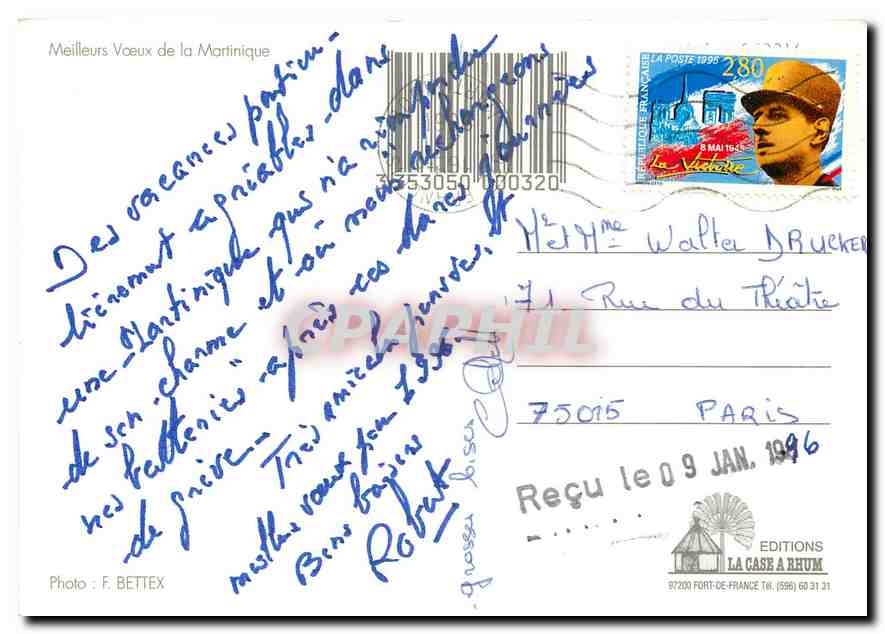 Meilleurs Vœux de la Martinique
Des vacances particu-
lièrement agréables dans
une Martinique qui n'a rien perdu
de son charme et où nous rechargeons
nos "batteries" après ces dures journées
de grève. Très amicales pensées, et
meilleurs vœux pour 1996.
Bons baisers
Robert
grosses bises
3353050 000320
LA POSTE 1995
2,80
RÉPUBLIQUE FRANÇAISE
8 MAI 1945
La Victoire
Mr et Mme Walter DRUCKER
71 Rue du Théâtre
75015 PARIS
Reçu le 09 JAN. 1996
EDITIONS
LA CASE A RHUM
97200 FORT-DE-FRANCE Tél. (596) 60 31 21
Photo : F. BETTEX
CPAPHIL